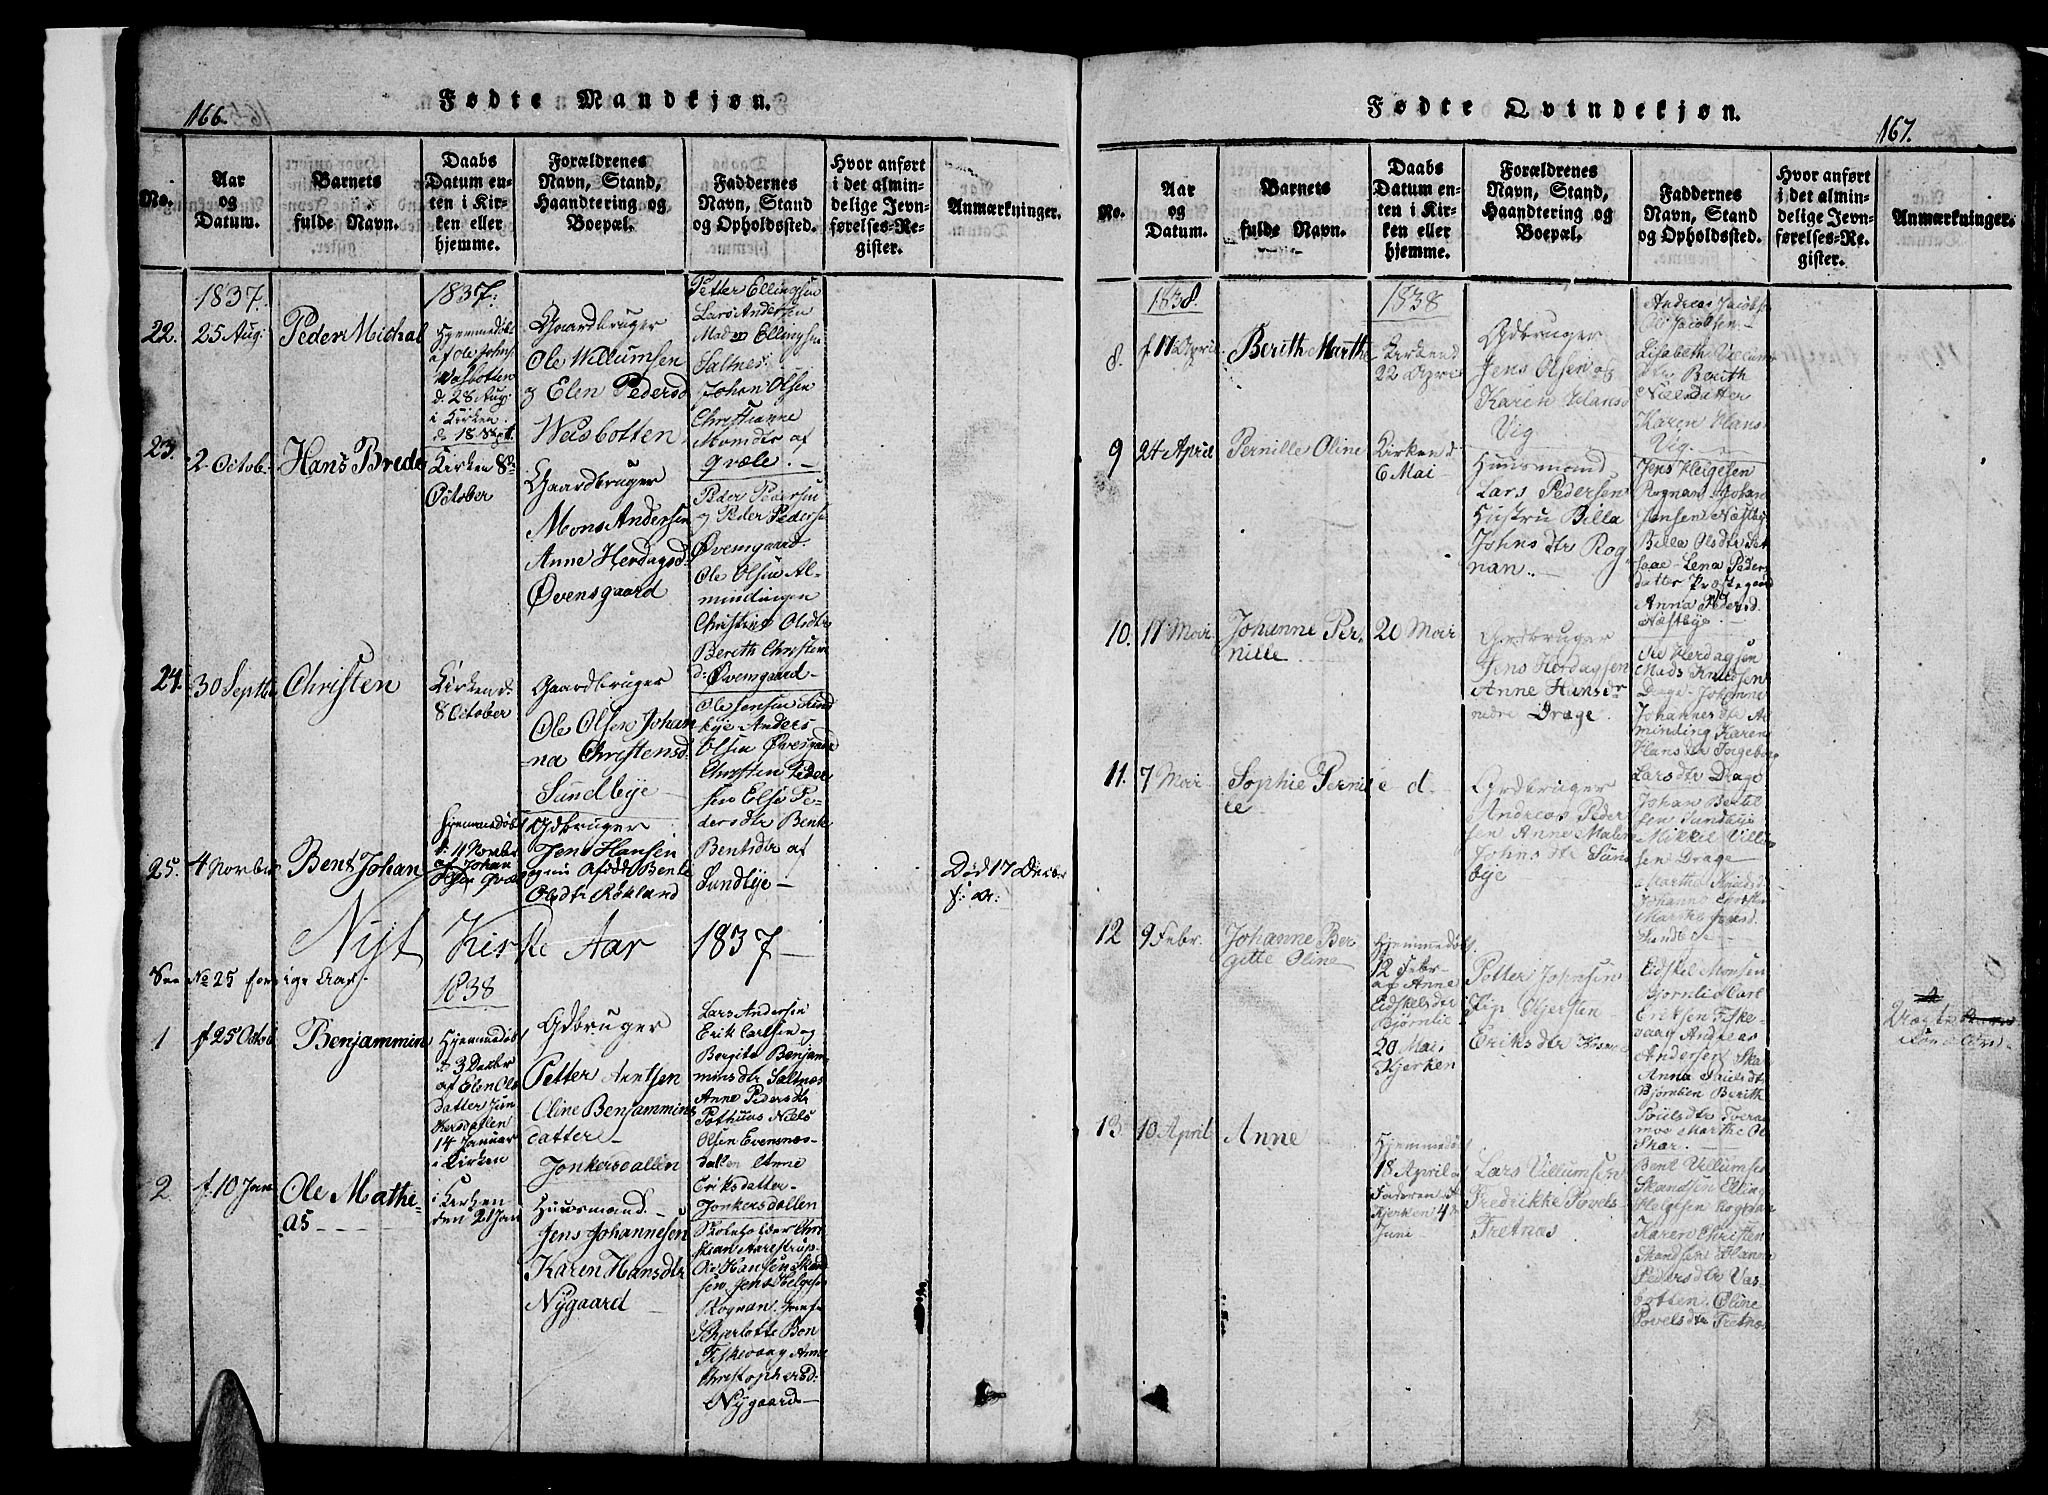 166.
Fødte Mandkjøn.
No.
Aar
og
Datum.
Barnets
fulde Navn.
Daabs
Datum en-
ten i Kir-
ken eller
hjemme.
Forældrenes
Navn, Stand,
Haandtering og
Boepæl.
Faddernes
Navn, Stand
og Opholdssted.
Hvor anført
i det almin-
delige Jevn-
førelses-Re-
gister.
Anmærkninger.
1837.
22.
25 Aug.
Peder Michal
1837.
Hjemmedøbt
af Ole Johns.
Wasbotten
d. 28 Aug.
i Kirken
d. 18 Sept.
Gaardbruger
Ole Willumsen
og Elen Pedersd
Wasbotten
Petter Ellingsen
Lars Andersen
Mads Ellingsen
Saltnes
Johan Olsen
Christianne
Monsdtr af
Qvæle.
23.
2. Octob.
Hans Brede
Kirken 8de
October
Gaardbruger
Mons Andersen
Anne Herdagsd.
Øvensgaard
Peder Pedersen
og Peder Pederse
Øvensgaard.
Ole Olsen Al-
mindingen
Christine Olsdtr
Berith Christen
d. Øvensgaard
24.
30 Septbr
Christen
Kirken d.
8 October
Gaardbruger
Ole Olsen Johan
na Christensd.
Sundbye
Ole Jensen Sund
bye Anders
Olsen Øvensgaard
Christen Peder
sen Else Pe-
dersdtr Bente
Bentsdtr af
Sundbye
25.
4 Novbr
Bent Johan
Hjemmedøbt
d. 11 Novbr
af Johan
Olsen Qvæl
Gdbruger
Jens Hansen
og Bente
Olsdtr Røkland
Død 17 Decbr
s: A:
Nyt Kirke Aar 1837
See No 25 forrige Aar.
1838
1
f 25 Octob
Benjammin
Hjemmedøbt
d. 3 Decbr
af Elen Ols
datter Jun
kersdallen
14 Januar
i Kirken
Gdbruger
Petter Arntsen
Oline Benjammins
datter
Jonkersdallen
Lars Andersen
Erik Carlsen og
Bergite Benjam
minsdtr Saltnæs
Anne Pedersdtr
Pothuus Niels
Olsen Evensnes-
dallen Anne
Eriksdatter
Jonkersdallen
2
f. 10 Jan
Ole Mathe-
as
i Kirken
den 21 Jan
Huusmand
Jens Johannesen
Karen Hansdtr
Nygaard
Skoleholder Chri
stian Aarestrup
Ole Hansen Skand
sen Jens Helgesen
Rognan
Scharlotte Bon
Fiskevaag Anne
Christophersd:
Nygaard
Fødte Qvindekjøn.
167.
No.
Aar
og
Datum.
Barnets
fulde Navn.
Daabs
Datum en-
ten i Kir-
ken eller
hjemme.
Forældrenes
Navn, Stand,
Haandtering og
Boepæl.
Faddernes
Navn, Stand
og Opholdssted.
Hvor anført
i det almin-
delige Jevn-
førelses-Re-
gister.
Anmærkninger.
1838.
8.
f 17 April
Berith Marthe
1838
Kirken d
22 April
Gdbruger
Jens Olsen og
Karen Hansd
Vig
Andreas Jacobs
Ole Jacobsen
Lisabeth Villums
dtr Berith
Nielsdatter
Karen Hans
Vig.
9
24 April
Pernille Oline
Kirken d
6 Mai
Huusmand
Lars Pedersen
Hustru Billa
Johnsdtr Rog
nan.
Jens Helgesen
Rognan Johan
Jensen Næstby
Billa Olsdtr Set
saae Lena Peders
datter Præstegaard
Anna Pedersd.
Næstbye
10.
11 Mai
Johanne Per-
nille
20 Mai
Gdbruger
Jens Herdagsen
Anne Hansdr
nedre Drage.
Ole Herdagsen
Mads Knudsen
Drage Johanne
Johannesdtr Al
minding Karen
Hansdtr Ingeborg
Larsdtr Drage
11.
7 Mai
Sophie Pernil
le
e d.
Gdbruger
Andreas Peder
sen Anne Malen
Johnsdtr Sund
bye
Johan Bertel
sen Sundbye
Mikkel Villum
sen Drage
Marthe Knudsd.
Johanna Christen
Marthe Jensd.
Sundbye
12
9 Febr.
Johanne Ber-
gitte Oline
Hjemmedøbt
12 Febr
af Anne
Eidskelsdtr
Bjørnlie
20 Mai
Kjerken
Petter Johnsen
Kjersten
Eriksdtr
Eidskel Monsen
Bjørnlid Carl
Eriksen Fiske-
vaag Andreas
Andersen Ska
Anna Povelsdtr
Bjørnlien Berith
Povelsdtr Tveraa
moe Marthe Ols
Skar.
13
10 April
Anne
Hjemmedøbt
18 April a
Faderen i
Kjerken 4de
Juni
Lars Villumsen
Fredrikke Povels
Fretnæs
Bent Villumsen
Skandsen Elling
Helgesen Rognan
Karen Christen
Skandsen Hanna
Pedersdtr Vas-
botten Oline
Povelsdtr Fretnæs